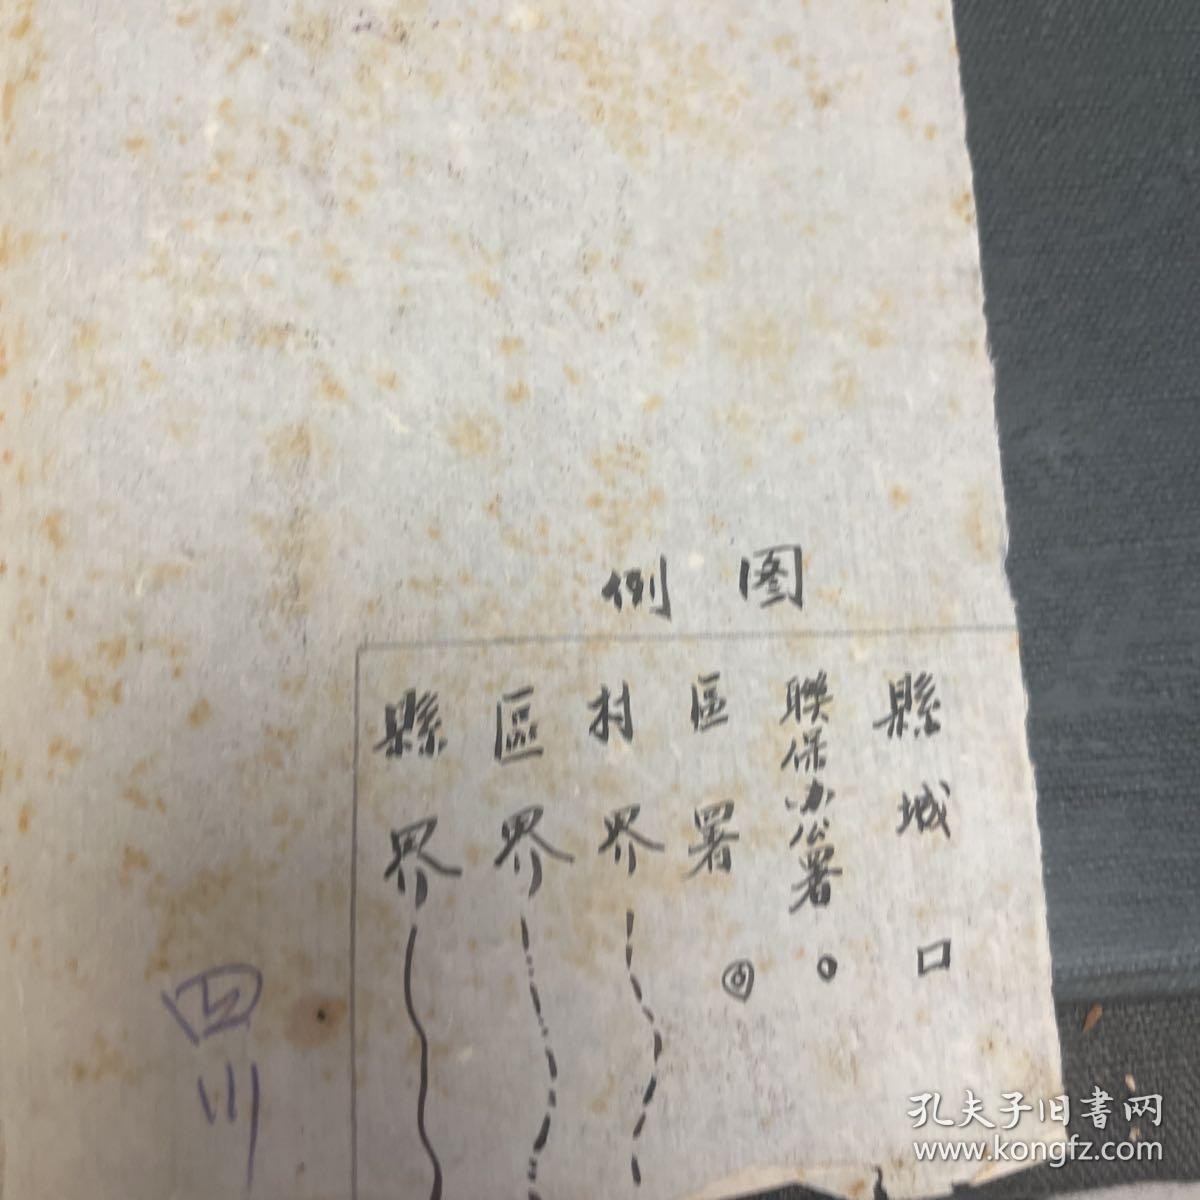 图例
縣城
聯保办公署
區署
村界
區界
縣界
四川
孔夫子旧書网
www.kongfz.com